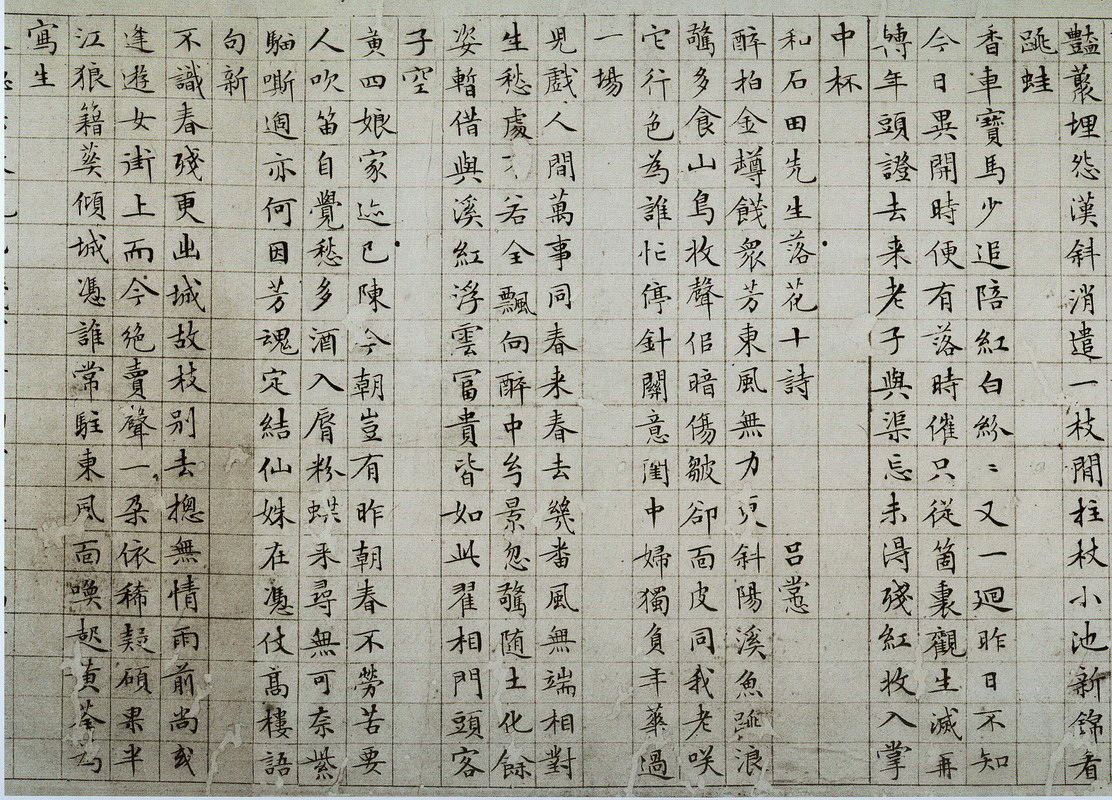 豔叢埋怨漢斜消遣一枝閒拄杖小池新錦看
跳蛙
香車寶馬少追陪紅白紛〻又一廻昨日不知
今日異開時便有落時催只從箇裏觀生滅再
轉年頭證去来老子與渠忘未得殘紅收入掌
中杯
和石田先生落花十詩 呂㦂
醉拍金罇餞衆芳東風無力更斜陽溪魚跳浪
驚多食山鳥收聲佀暗傷皺卻面皮同我老咲
它行色為誰忙停針關意閨中婦獨負年華過
一場
兒戲人間萬事同春来春去幾番風無端相對
生愁處不若全飄向醉中好景忽驚随土化餘
姿暫借與溪紅浮雲冨貴皆如此翟相門頭客
子空
黄四娘家迹已陳今朝豈有昨朝春不勞苦要
人吹笛自覺愁多酒入脣粉蜨来尋無可奈紫
駵嘶過亦何因芳魂定結仙姝在憑仗髙樓語
句新
不識春殘更出城故枝别去揔無情雨前尚或
逢遊女街上而今絶賣聲一朶依稀疑碩果半
江狼籍葬傾城憑誰常駐東風面喚起黄荃為
寫生